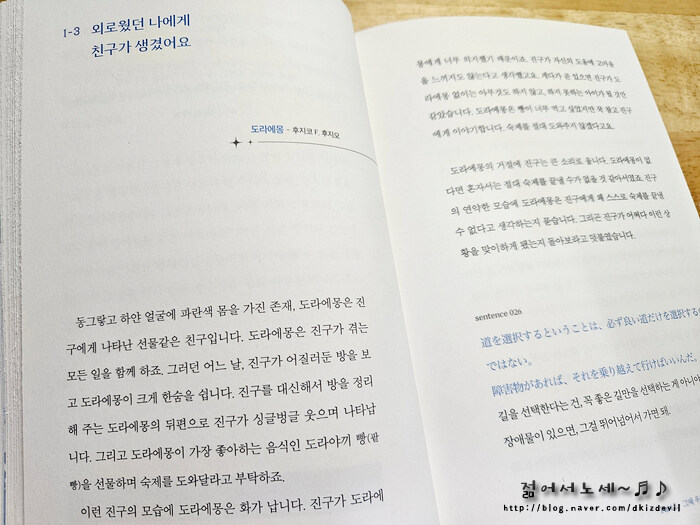 1-3 외로웠던 나에게
친구가 생겼어요
도라에몽 - 후지코 F. 후지오
동그랗고 하얀 얼굴에 파란색 몸을 가진 존재, 도라에몽은 진
구에게 나타난 선물같은 친구입니다. 도라에몽은 진구가 겪는
모든 일을 함께 하죠. 그러던 어느 날, 진구가 어질러둔 방을 보
고 도라에몽이 크게 한숨을 쉽니다. 진구를 대신해서 방을 정리
해 주는 도라에몽의 뒤편으로 진구가 싱글벙글 웃으며 나타납
니다. 그리고 도라에몽이 가장 좋아하는 음식인 도라야끼 빵(팥
빵)을 선물하며 숙제를 도와달라고 부탁하죠.
이런 진구의 모습에 도라에몽은 화가 납니다. 진구가 도라에
몽에게 너무 의지했기 때문이죠. 진구가 자신의 도움에 고마움
을 느끼지도 않는다고 생각했고요. 게다가 큰 있으면 진구가 도
라에몽 없이는 아무것도 하지 않고, 하지 못하는 아이가 될 것만
같았습니다. 도라에몽은 빵이 너무 먹고 싶었지만 꾹 참고 진구
에게 이야기합니다. 숙제를 절대 도와주지 않겠다고요.
도라에몽의 거절에 진구는 큰 소리로 웁니다. 도라에몽이 없
다면 혼자서는 절대 숙제를 끝낼 수가 없을 것 같아서였죠. 진구
의 연약한 모습에 도라에몽은 진구에게 왜 스스로 숙제를 끝낼
수 없다고 생각하는지 묻습니다. 그리곤 진구가 어쩌다 이런 상
황을 맞이하게 됐는지 돌아보라고 덧붙였습니다.
sentence 026
道を選択するということは、必ず良い道だけを選択する
ではない。
障害物があれば、それを乗り越えて行けばいいんだ。
길을 선택한다는 건, 꼭 좋은 길만을 선택하는 게 아니야
장애물이 있으면, 그걸 뛰어넘어서 가면 돼.
젊어서노세~♬♪
http://blog.naver.com/dkizdevil